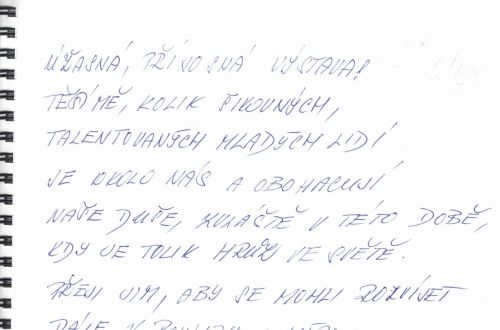 ÚŽASNÁ, PŘÍNOSNÁ VÝSTAVA!
TĚŠÍ MĚ, KOLIK ŠIKOVNÝCH,
TALENTOVANÝCH MLADÝCH LIDÍ
JE OKOLO NÁS A OBOHACUJÍ
NAŠE DUŠE, ZVLÁŠTĚ V TÉTO DOBĚ,
KDY JE TOLIK HRŮZY VE SVĚTĚ.
PŘEJI JIM, ABY SE MOHLI ROZVÍJET
DÁLE V